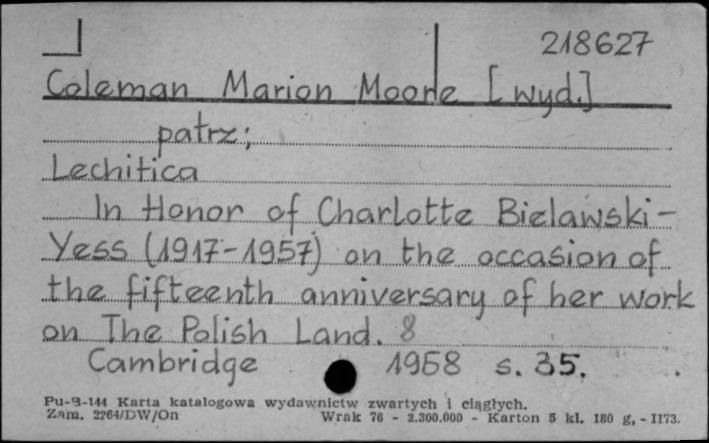 218627
Coleman Marion Moore [wyd.]
patrz;
Lechitica
In Honor of Charlotte Bielawski-
Yess (1917-1957) on the occasion of
the fifteenth anniversary of her work
on The Polish Land. 8
Cambridge 1958 s. 35.
Pu-B-144 Karta katalogowa wydawnictw zwartych i ciągłych.
Zam. 2764/DW/On Wrak 76 - 2.300.000 - Karton 5 kl. 180 g, - 1173.